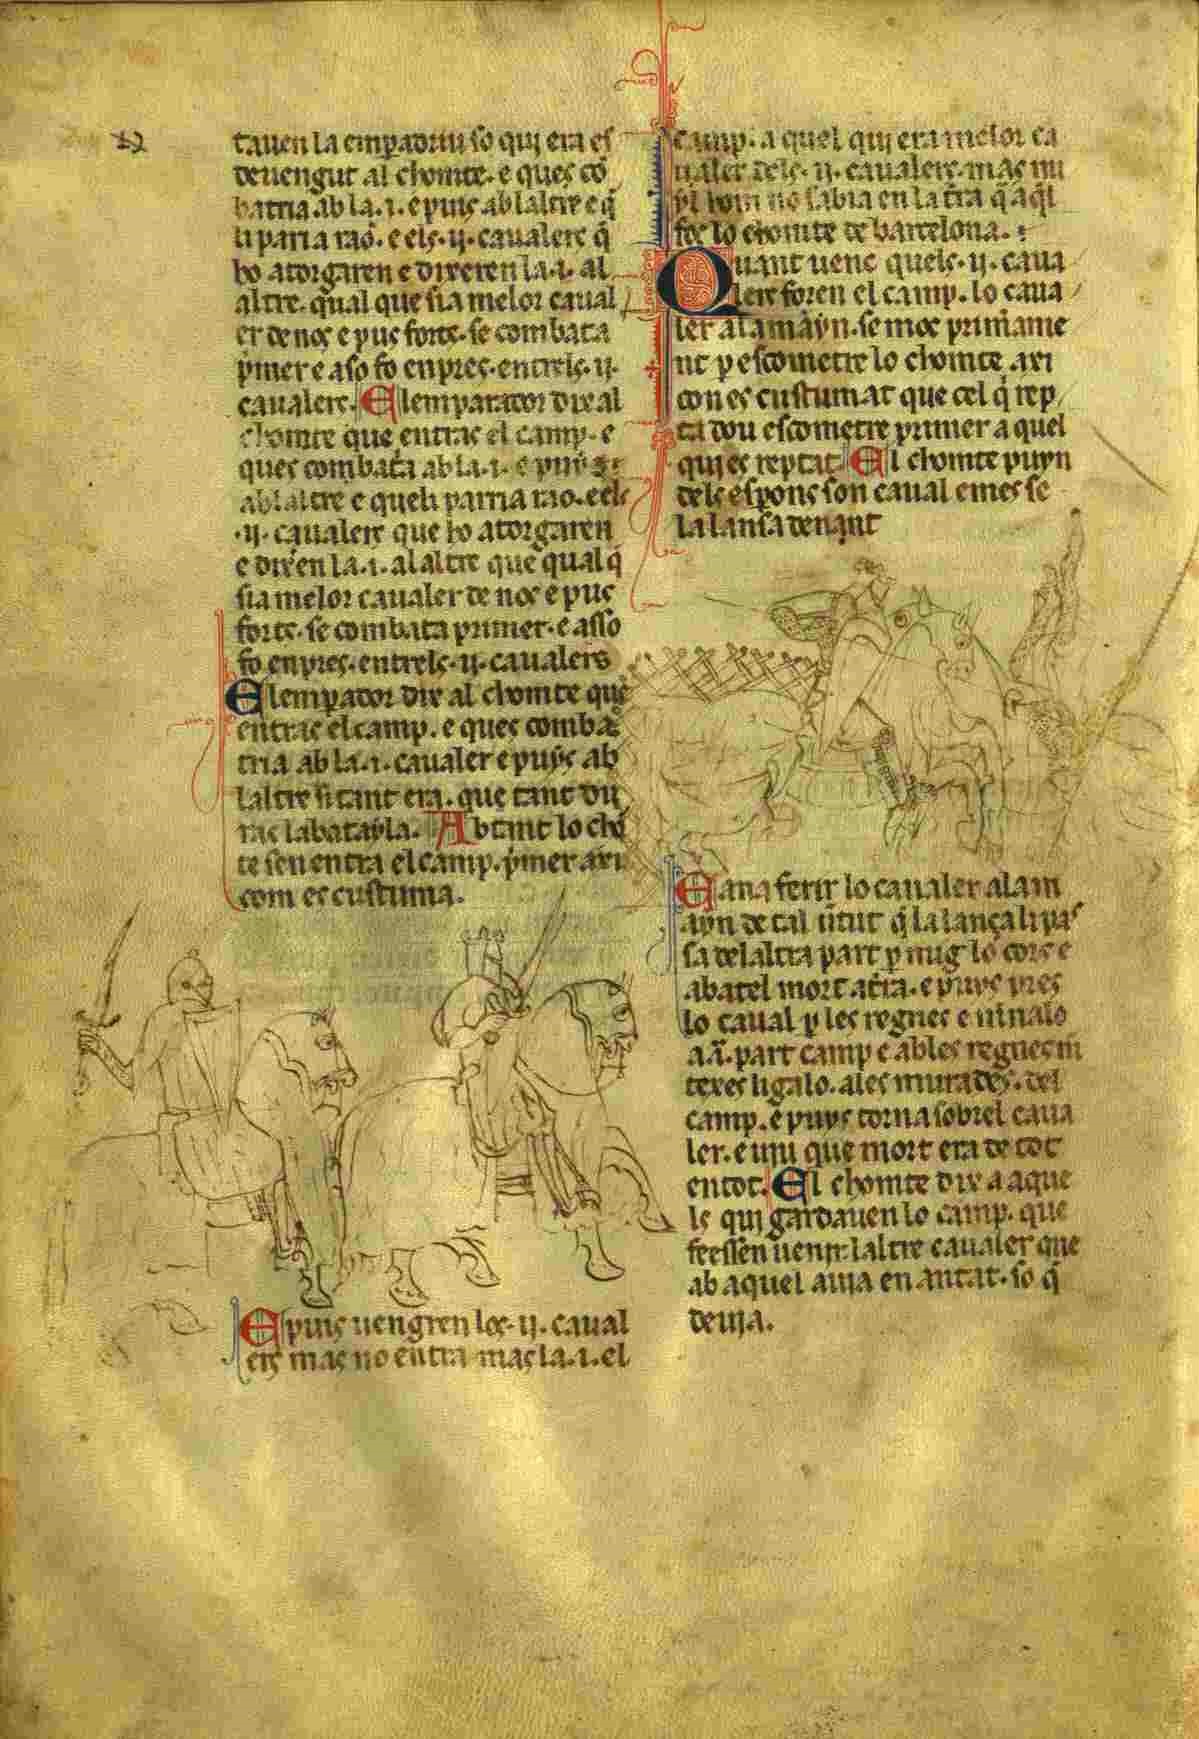 tauen la emperadriu so qui era es
deuengut al chomte. e ques cō
batria ab la .i. e puis ab laltre e q̄
li paria rao. e els .ij. caualers q̄
ho atorgaren e dixeren la .i. al
altre. qual que sia melor caual
er de nos e pus forts. se combata
pͥmer e aso fo enpres. entrels .ij.
caualers. El emparador dix al
chomte que entras el camp. e
ques combata ab la .i. e puys
ab laltre e queli parria rao. e els
.ij. caualers que ho atorgaren
e dixeren la .i. al altre que qual q̄
sia melor caualer de nos e pus
forts. se combata primer. e asso
fo enpres. entrels .ij. caualers
El emperador dix al chomte que
entras el camp. e ques comba
tria ab la .i. caualer e puys ab
laltre si tant era. que tant du
ras la batayla. Ab tant lo chō
te sen entra el camp. pͥmer axi
com es custuma.
E puis uengren los .ij. caual
ers mas no entra mas la .i. el
camp. a quel qui era melor ca
ualer dels .ij. caualers. mas nu
yl hom no sabia en la tr̄a q̄ aq̄l
fos lo chomte de barcelona.
Quant uenc quels .ij. caua
lers foren el camp. lo caua
ler alamayn. se moc primame
nt p escometre lo chomte. axi
con es custumat que cel q̄ rep
ta dou escometre primer a quel
qui es reptat. El chomte puyn
dels espons son caual e mes se
la lansa denant
E ana ferir lo caualer alam
ayn de tal ūtut q̄ la lança li pas
sa del altra part p mig lo cors e
abatel mort a tr̄a. e puys pres
lo caual p les regnes e ninalo
a .ā. part camp e ab les regnes m
texes ligalo. ales murades. del
camp. e puys torna sobrel caua
ler. e uiu que mort era de tot
en tot. El chomte dix a aque
ls qui gardauen lo camp. que
feessen uenir laltre caualer que
ab aquel auia en antat. so q̄
deuia.